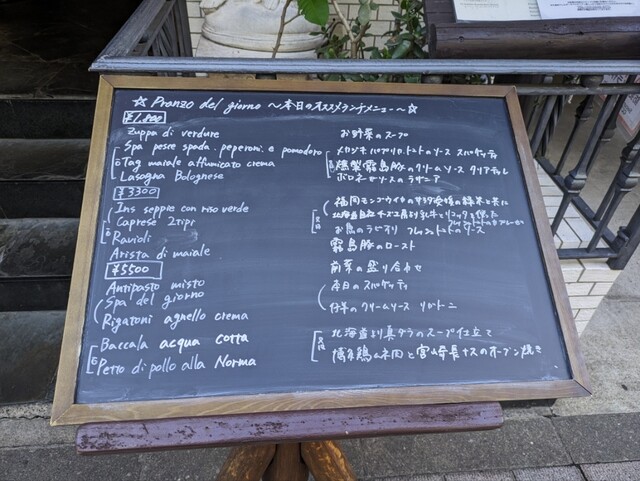 ☆ Pranzo del giorno 〜本日のオススメランチメニュー〜☆
¥1,800
Zuppa di verdure お野菜のスープ
Spa pesce spada . peperoni . e pomodoro メカジキ パプリカ、トマトのソース スパゲッティ
Tag maiale affumicato crema 燻製霧島豚のクリームソース タリアテッレ
Lasagna Bolognese ボロネーゼソースのラザニア
¥3300
Ins seppie con riso verde 福岡モンゴウイカのサラダ 緑米と共に
Caprese 2tipi 北海道
Ravioli お魚のラビオリ フレッシュトマトのソース
Arista di maiale 霧島豚のロースト
¥5500
Antipasto misto 前菜の盛り合わせ
Spa del giorno 本日のスパゲッティ
Rigatoni agnello crema 仔羊のクリームソース リガトーニ
Baccala acqua cotta 北海道より真タラのスープ仕立て
Petto di pollo alla Norma 博多鶏ムネ肉と宮崎長ナスのオーブン焼き